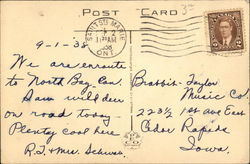 POST CARD
SAULT STE MARIE
ONT.
9-1-38
We are enroute
to North Bay Can.
Saw wild deer
on road today
Plenty cool here
R.J. & Mrs.
Brabbit-Taylor
Music Co.
223½ 1st Ave East
Cedar Rapids
Iowa.